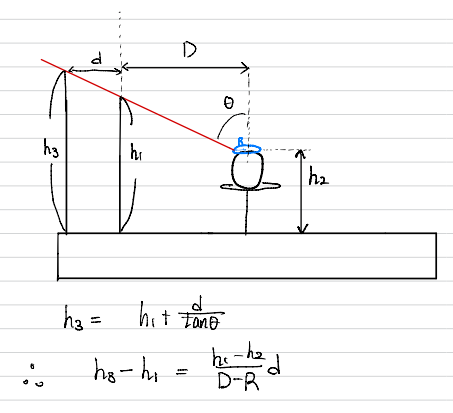 d
D
θ
R
h₃
h₁
h₂
h₃ = h₁ + d/tanθ
∴ h₃ - h₁ = (h₁-h₂)/(D-R) d